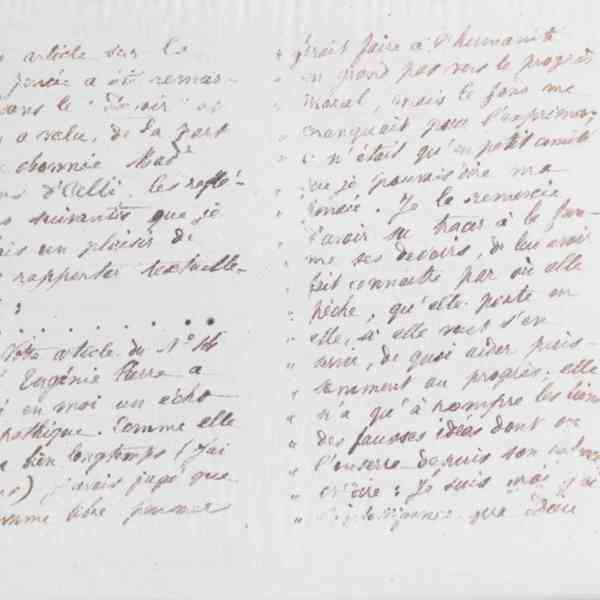 article sur le
pensée a été remar-
dans le "devoir" et
a valu, de la part
abonnée Made
d'Celli. les réflé-
suivantes que je
ais un plaisir de
rapporter textuelle-
:
. . . . . . . .
Votre article du N° 14
Eugénie Pierre a
en moi un écho
pathique. Comme elle
bien longtemps (J'ai
ans) j'avais jugé que
femme libre penseur
" ferait faire à l'humanité
" un grand pas vers le progrès
" moral, mais le fons me
" manquait pour l'exprimer,
" ce n'était qu'en petit comité
" que je pouvais dire ma
" pensée. Je la remercie
" d'avoir su tracer à la fem-
" me ses devoirs, de lui avoir
" fait connaître par où elle
" pèche, qu'elle porte en
" elle, si elle veut s'en
" servir, de quoi aider puis-
" samment au progrès; elle
" n'a qu'à rompre les liens
" des fausses idées dont on
" l'enserre depuis son
" Je suis moi j'ai
" que deux